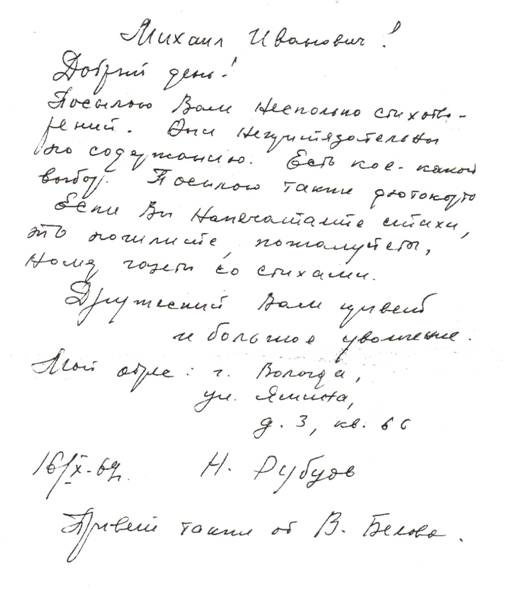 Михаил Иванович!
Добрый день!
Посылаю Вам несколько стихотво-
рений. Они непритязательны
по содержанию. Есть кое-какой
выбор. Посылаю также фотокарто
Если Вы напечатаете стихи,
то пошлите, пожалуйста,
номер газеты со стихами.
Дружеский Вам привет
и большое уважение.
Мой адрес: г. Вологда,
ул. Яшина,
д. 3, кв. 66
16/IX-69г. Н. Рубцов
Привет также от В. Белова.